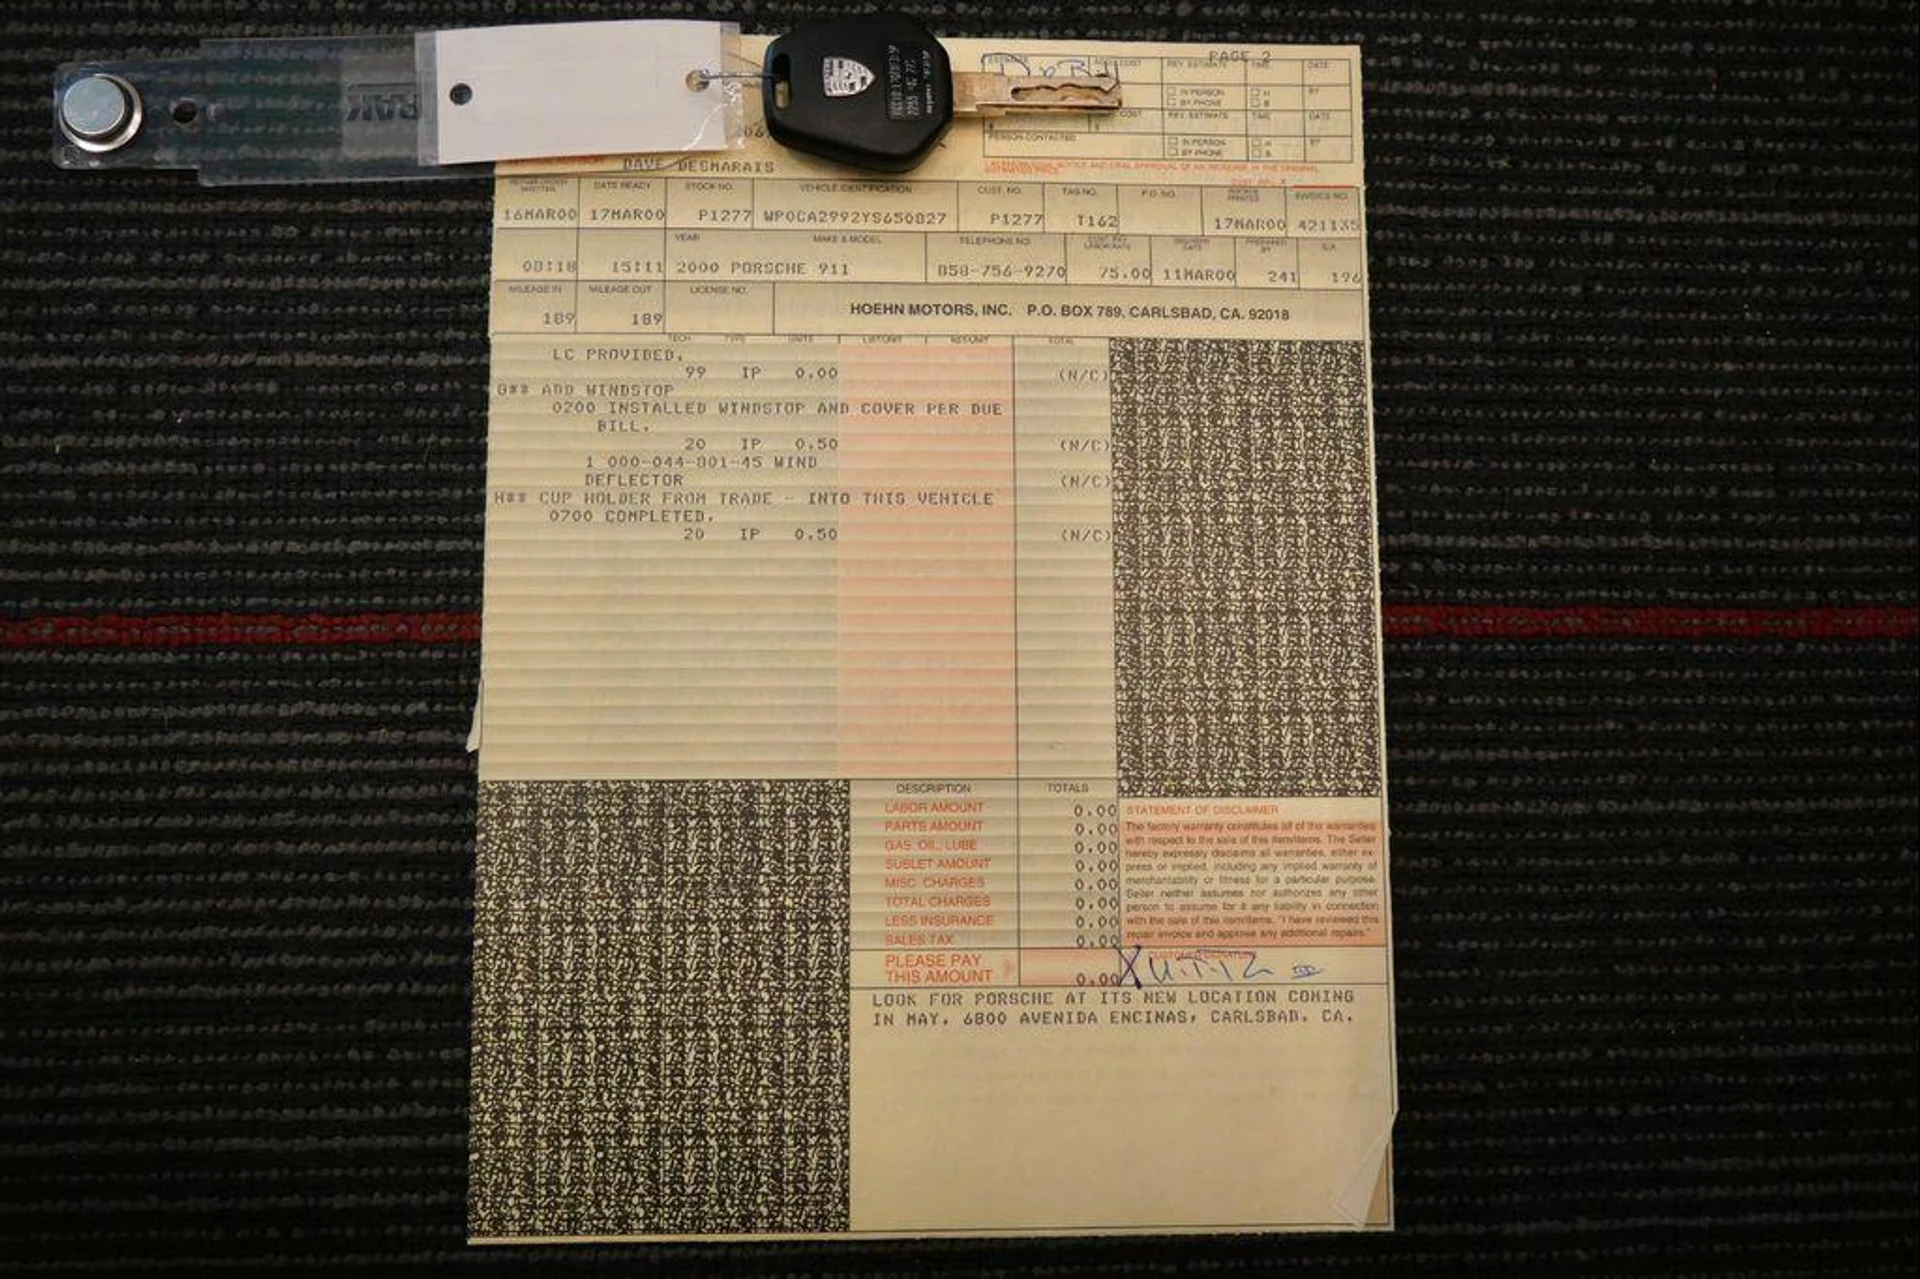 PAGE 2
REV. ESTIMATE TIME DATE
IN PERSON
BY PHONE
BY
COST REV. ESTIMATE TIME DATE
PERSON CONTACTED
IN PERSON
BY PHONE
BY
DAVE DESMARAIS
DATE READY STOCK NO. VEHICLE IDENTIFICATION CUST. NO. TAG NO. P.O. NO. INVOICE NO.
16MAR00 17MAR00 P1277 WP0CA2992YS650827 P1277 T162 17MAR00 421135
YEAR MAKE & MODEL TELEPHONE NO.
08:18 15:11 2000 PORSCHE 911 858-756-9270 75.00 11MAR00 241 196
MILEAGE IN MILEAGE OUT LICENSE NO.
189 189
HOEHN MOTORS, INC. P.O. BOX 789, CARLSBAD, CA. 92018
TECH TYPE UNITS TOTAL
LC PROVIDED.
99 IP 0.00 (N/C)
G## ADD WINDSTOP
0200 INSTALLED WINDSTOP AND COVER PER DUE
BILL.
20 IP 0.50 (N/C)
1 000-044-801-45 WIND
DEFLECTOR (N/C)
H## CUP HOLDER FROM TRADE - INTO THIS VEHICLE
0700 COMPLETED.
20 IP 0.50 (N/C)
DESCRIPTION TOTALS
LABOR AMOUNT 0.00
PARTS AMOUNT 0.00
GAS, OIL, LUBE 0.00
SUBLET AMOUNT 0.00
MISC. CHARGES 0.00
TOTAL CHARGES 0.00
LESS INSURANCE 0.00
SALES TAX 0.00
PLEASE PAY
THIS AMOUNT 0.00
STATEMENT OF DISCLAIMER
The factory warranty constitutes all of the warranties
with respect to the sale of this item/items. The Seller
hereby expressly disclaims all warranties, either ex-
press or implied, including any implied warranty of
merchantability or fitness for a particular purpose.
Seller neither assumes nor authorizes any other
person to assume for it any liability in connection
with the sale of this item/items. "I have reviewed this
repair invoice and approve any additional repairs."
CUSTOMER SIGNATURE
X
LOOK FOR PORSCHE AT ITS NEW LOCATION COMING
IN MAY. 6800 AVENIDA ENCINAS, CARLSBAD, CA.